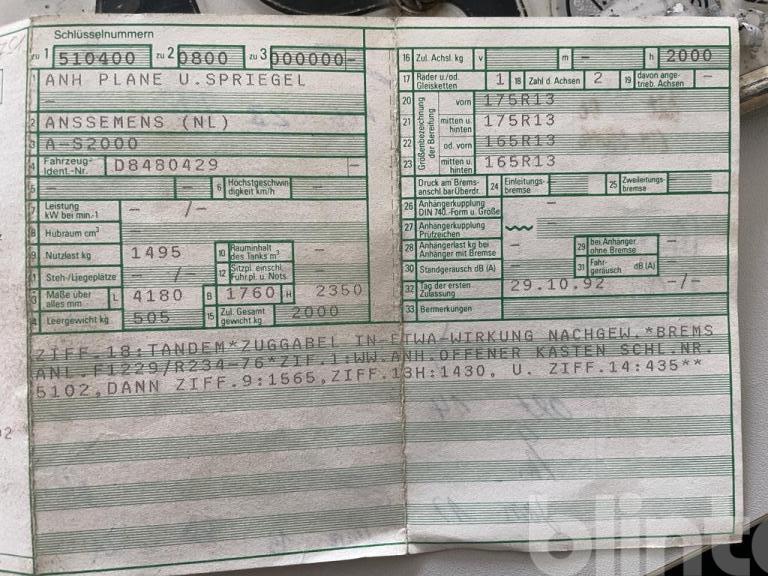 Schlüsselnummern
zu 1 510400 zu 2 0800 zu 3 000000-
1 ANH PLANE U.SPRIEGEL
-
2 ANSSEMENS (NL)
3 A-S2000
4 Fahrzeug-Ident.-Nr. D8480429 -
5 - - 6 Höchstgeschwindigkeit km/h -
7 Leistung kW bei min.-1 - /-
8 Hubraum cm³ -
9 Nutzlast kg 1495 10 Rauminhalt des Tanks m³ -
11 Steh-/Liegeplätze - /- 12 Sitzpl. einschl. Führpl. u. Nots. -
13 Maße über alles mm L 4180 B 1760 H 2350
14 Leergewicht kg 505 15 Zul. Gesamtgewicht kg 2000
16 Zul. Achsl. kg v m - h 2000
17 Räder u./od. Gleisketten 1 18 Zahl d. Achsen 2 19 davon angetrieb. Achsen -
Größenbezeichnung der Bereifung
20 vorn 175R13
21 mitten u. hinten 175R13
22 od. vorn 165R13
23 mitten u. hinten 165R13
Druck am Bremsanschl. bar Überdr. 24 Einleitungsbremse 25 Zweileitungsbremse
26 Anhängerkupplung DIN 740.-Form u. Größe -
27 Anhängerkupplung Prüfzeichen
28 Anhängerlast kg bei Anhänger mit Bremse - 29 bei Anhänger ohne Bremse -
30 Standgeräusch dB (A) - 31 Fahrgeräusch dB (A)
32 Tag der ersten Zulassung 29.10.92 -/-
33 Bemerkungen
ZIFF.18:TANDEM*ZUGGABEL IN-ETWA-WIRKUNG NACHGEW.*BREMS
ANL.F1229/R234-76*ZIF.1:WW.ANH.OFFENER KASTEN SCHL.NR.
5102,DANN ZIFF.9:1565,ZIFF.13H:1430, U. ZIFF.14:435**